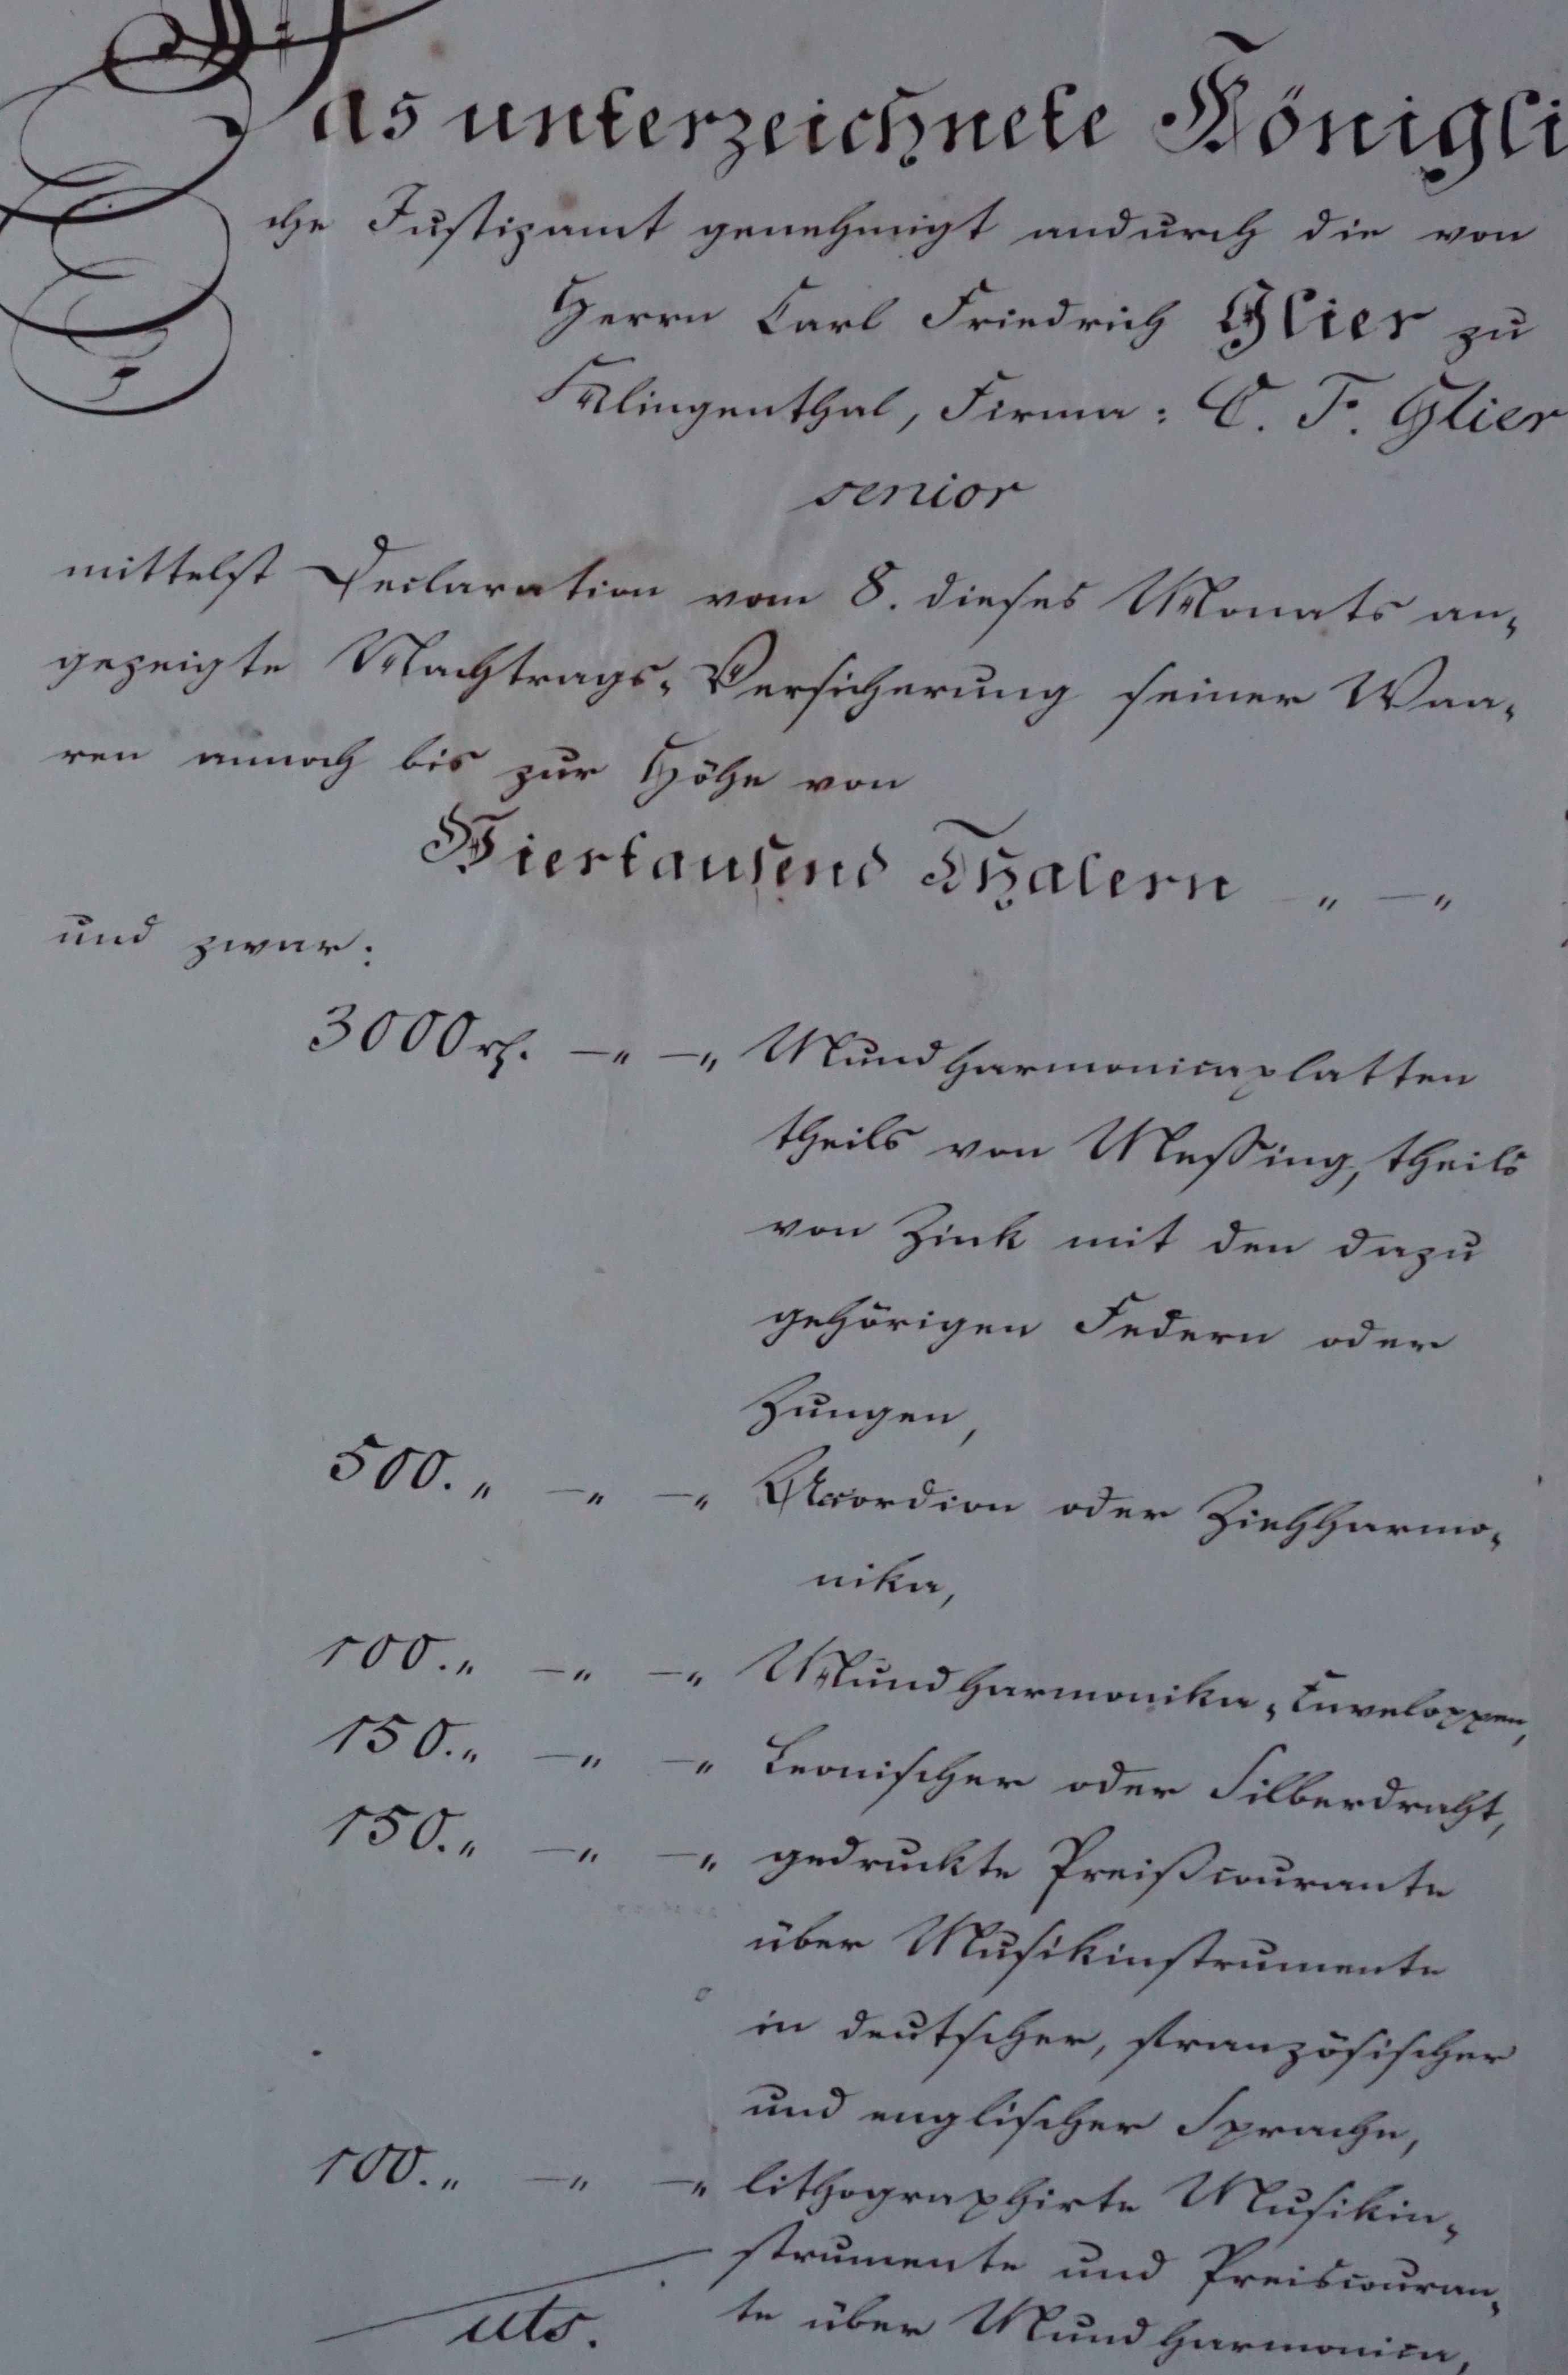 Das unterzeichnete Königli
che Justizamt genehmigt andurch die von
Herrn Carl Friedrich Glier zu
Klingenthal, Firma: C. F. Glier
senior
mittelst Declaration vom 8. dieses Monats an-
gezeigte Nachtrags-Versicherung seiner Waa-
ren annoch bis zur Höhe von
Viertausend Thalern „ —„
und zwar:
3000 rℓ. —„ —„ Mundharmonicaplatten
theils von Meßing, theils
von Zink mit den dazu
gehörigen Federn oder
Zungen,
500. „ —„ —„ Accordion oder Ziehharmo-
nika,
100. „ —„ —„ Mundharmonika-Enveloppen,
150. „ —„ —„ Leonischer oder Silberdraht,
150. „ —„ —„ gedruckte Preißcourante
über Musikinstrumente
in deutscher, französischer
und englischer Sprache,
100. „ —„ —„ lithographirte Musikin-
strumente und Preiscouran-
te über Mundharmonica,
uts.